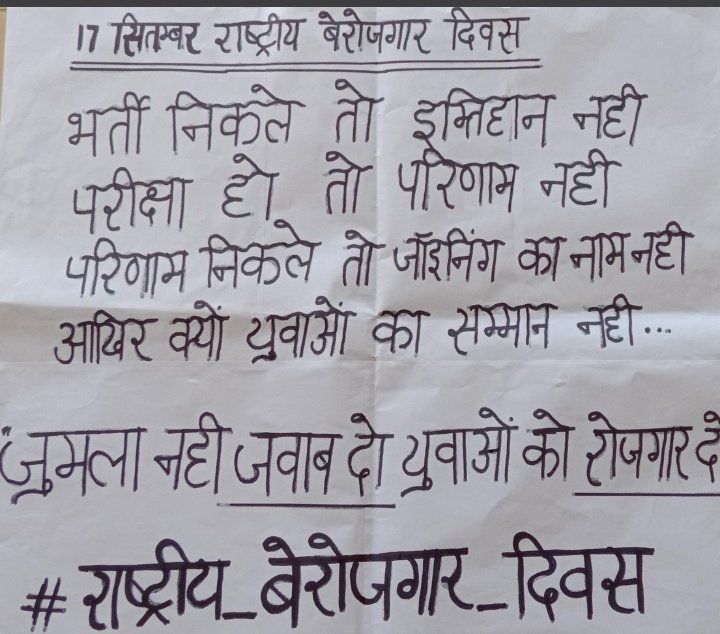 17 सितम्बर राष्ट्रीय बेरोजगार दिवस
भर्ती निकले तो इम्तिहान नही
परीक्षा हो तो परिणाम नही
परिणाम निकले तो जॉइनिंग का नाम नही
आखिर क्यों युवाओं का सम्मान नही...
"जुमला नही जवाब दो युवाओं को रोजगार दे
#राष्ट्रीय_बेरोजगार_दिवस